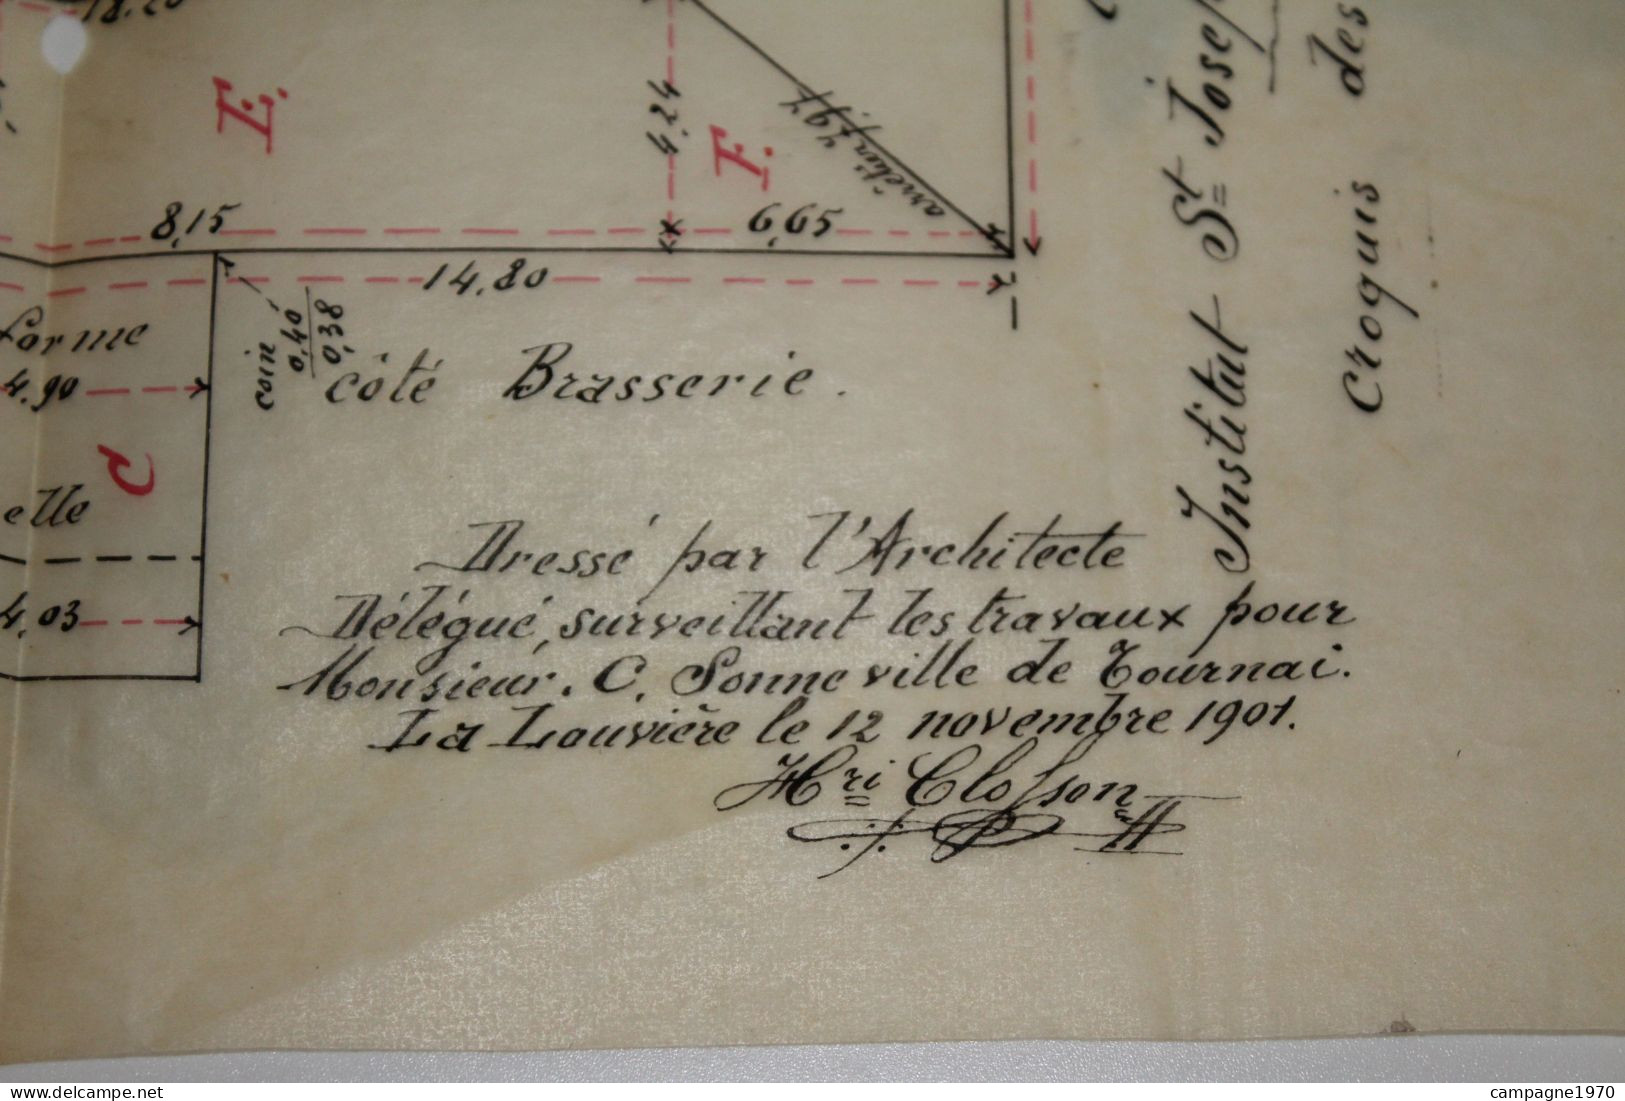 E.
4,24
F.
8,15
6,65
14.80
forme
4.90
coin
0,40
0,38
côté Brasserie.
C
elle
4,03
Dressé par l'Architecte
Délégué, surveillant les travaux pour
Monsieur. C. Sonneville de Tournai.
La Louvière le 12 novembre 1901.
Hri Closson
Institut St Josep
Croquis des
delcampe.net
campagne1970